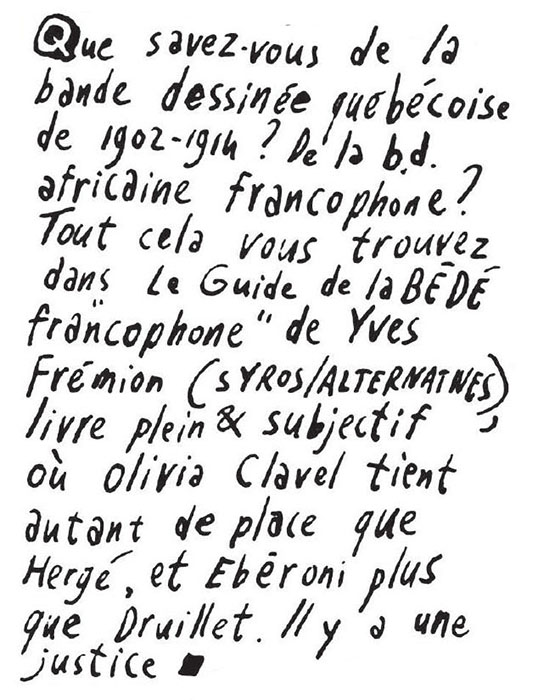 Que savez-vous de la
bande dessinée québécoise
de 1902-1914 ? De la b.d.
africaine francophone ?
Tout cela vous trouvez
dans "Le Guide de la BÉDÉ
francophone" de Yves
Frémion (SYROS/ALTERNATIVES),
livre plein & subjectif
où Olivia Clavel tient
autant de place que
Hergé, et Ebêroni plus
que Druillet. Il y a une
justice ■